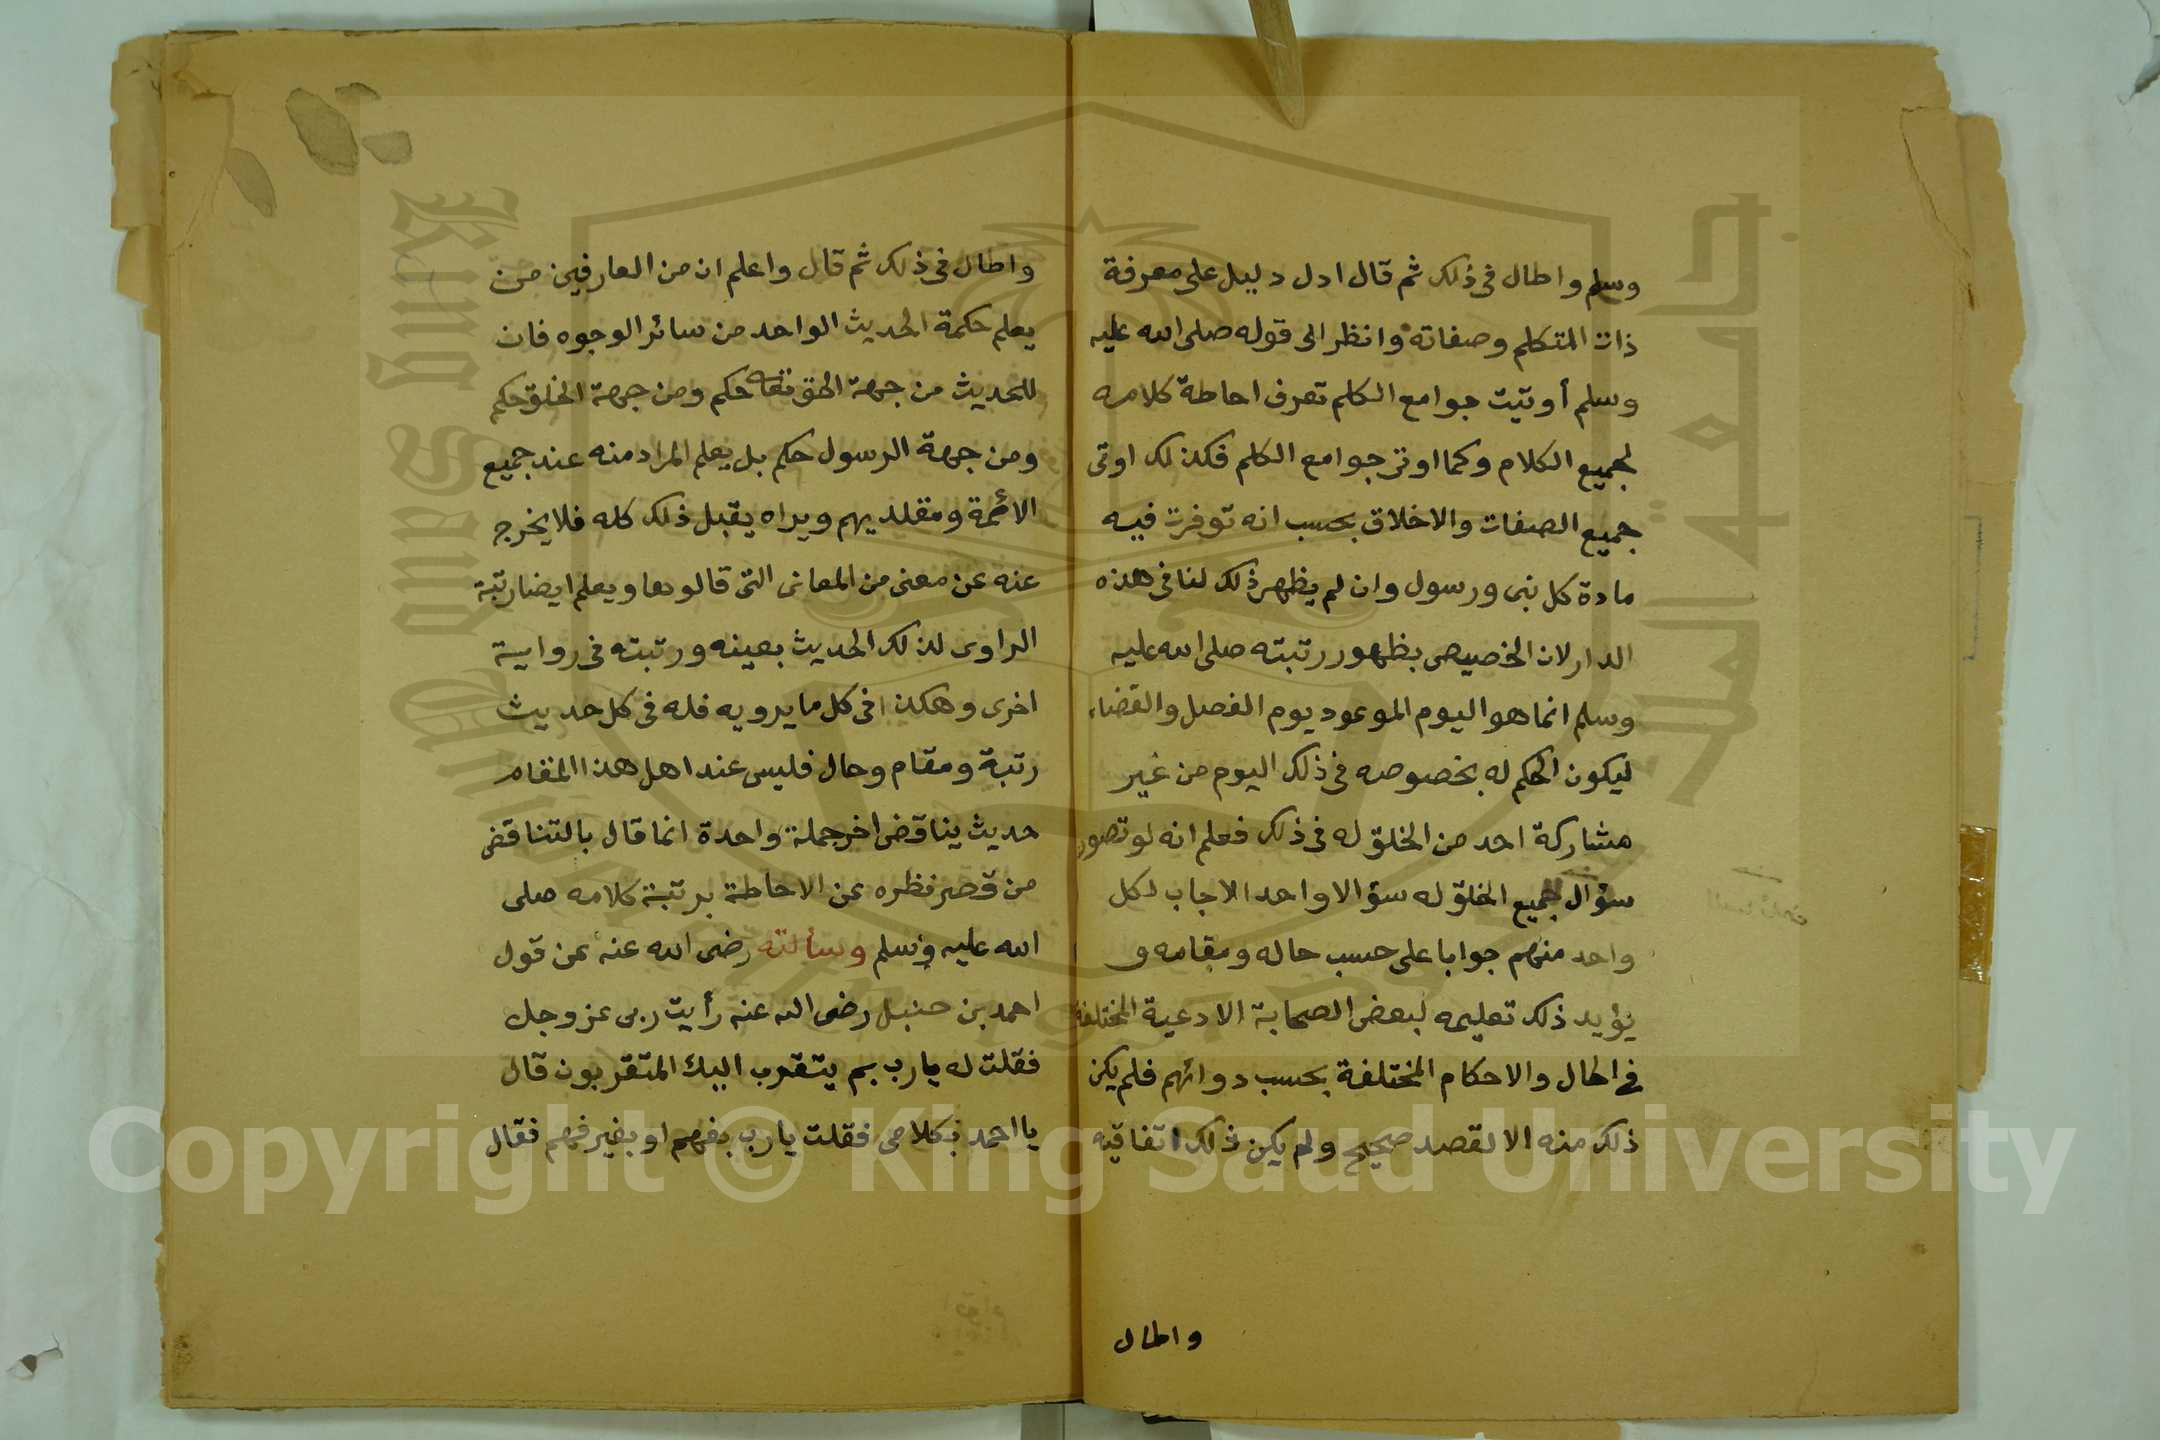 وسلم واطال فى ذلك ثم قال ادل دليل على معرفة
ذات المتكلم وصفاته وانظر الى قوله صلى الله عليه
وسلم أوتيت جوامع الكلم تعرف احاطة كلامه
لجميع الكلام وكما اوتى جوامع الكلم فكذلك اوتى
جميع الصفات والاخلاق بحسب انه توفرت فيه
مادة كل نبى ورسول وان لم يظهر ذلك لنا فى هذه
الدار لان الخصيص بظهور رتبته صلى الله عليه
وسلم انما هو اليوم الموعود يوم الفصل والقضاء
ليكون الحكم له بخصوصه فى ذلك اليوم من غير
مشاركة احد من الخلق له فى ذلك فعلم انه لو تصور
سؤال جميع الخلق له سؤالا واحدا لاجاب لكل
واحد منهم جوابا على حسب حاله ومقامه و
يؤيد ذلك تعليمه لبعض الصحابة الادعية المختلفة
فى الحال والاحكام المختلفة بحسب دوائهم فلم يكن
ذلك منه الا لقصد صحيح ولم يكن ذلك اتفاقيه
واطال
واطال فى ذلك ثم قال واعلم ان من العارفين من
يعلم حكمة الحديث الواحد من سائر الوجوه فان
للحديث من جهة الحق تعا حكم ومن جهة الخلق حكم
ومن جهة الرسول حكم بل يعلم المراد منه عند جميع
الائمة ومقلديهم ويراه يقبل ذلك كله فلا يخرج
عنه عن معنى من المعانى التى قالوها ويعلم ايضا رتبة
الراوى لذلك الحديث بعينه ورتبته فى رواية
اخرى وهكذا فى كل ما يرويه فله فى كل حديث
رتبة ومقام وحال فليس عند اهل هذا المقام
حديث يناقض اخر جملة واحدة انما قال بالتناقض
من قصر نظره عن الاحاطة برتبة كلامه صلى
الله عليه وسلم وسألته رضى الله عنه عن قول
احمد بن حنبل رضى الله عنه رأيت ربى عز وجل
فقلت له يارب بم يتقرب اليك المتقربون قال
يا احمد بكلامى فقلت يارب بفهم او بغير فهم فقال
جامعة الملك سعود
King Saud University
Copyright © King Saud University